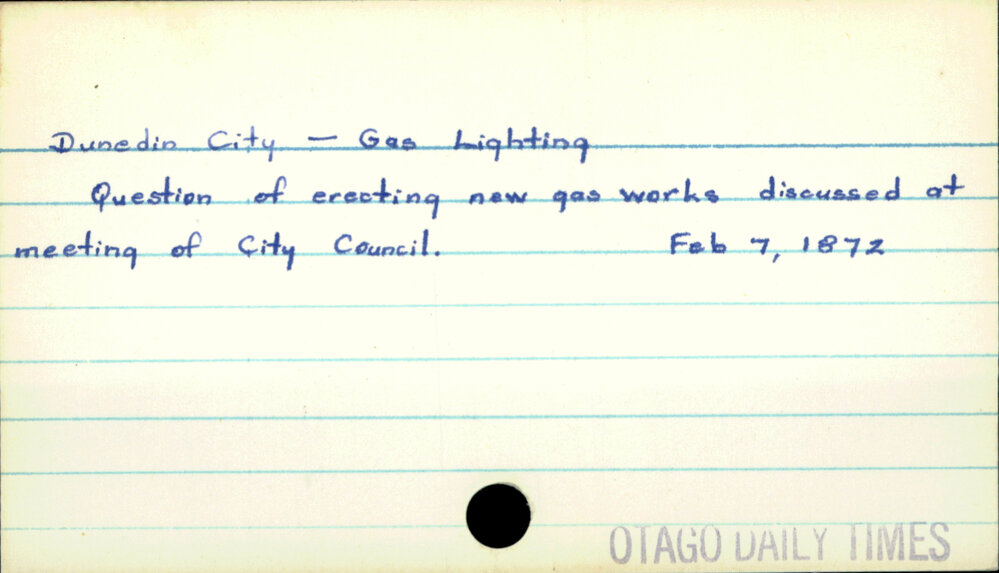 Dunedin City — Gas Lighting
Question of erecting new gas works discussed at
meeting of City Council. Feb 7, 1872
OTAGO DAILY TIMES